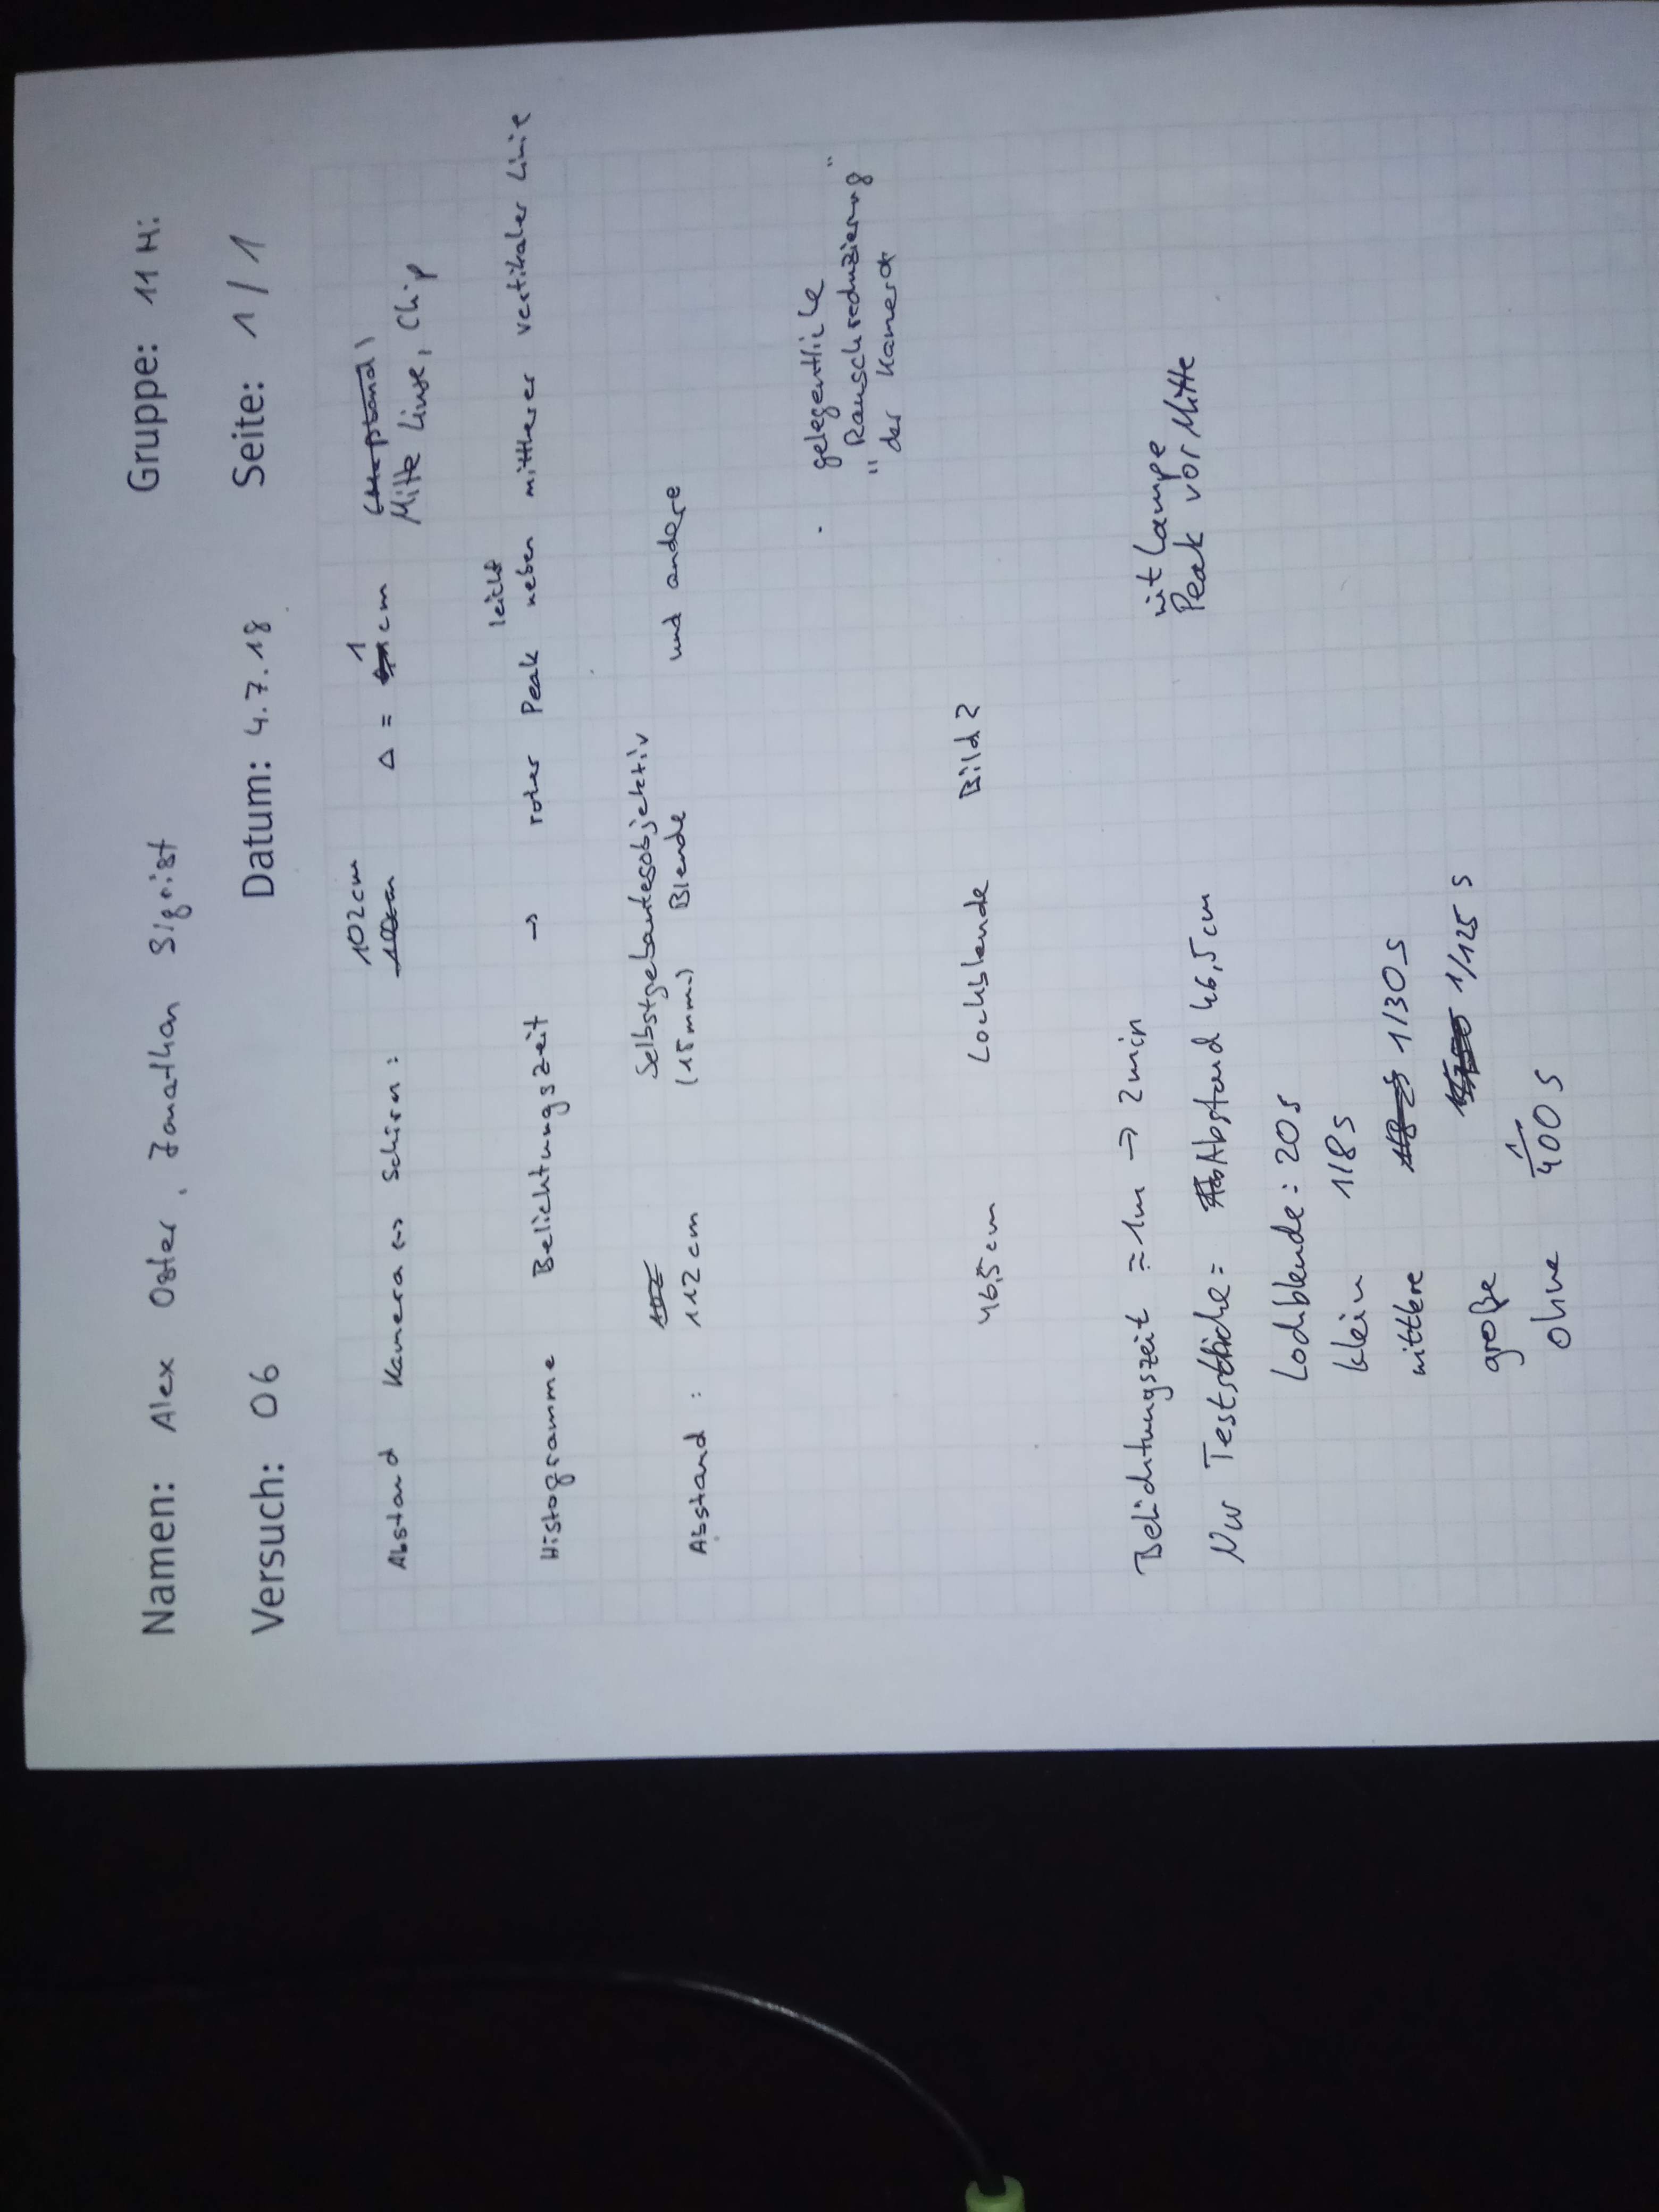 Namen: Alex Oster, Jonathan Sigrist Gruppe: 11 Mi
Versuch: 06 Datum: 4.7.18 Seite: 1/1
Abstand Kamera ↔ Schirm: 102cm Δ = 1 cm
Mitte Linse, Chip
Histogramme Belichtungszeit → roter Peak leicht neben mittlerer vertikaler Linie
Abstand: 112 cm Selbstgebautesobjektiv und andere
(15mm) Blende
gelegentliche
"Rauschreduzierung"
der Kamera
46,5cm Lochblende Bild 2
Belichtungszeit ≈ 1m → 2min mit Lampe
Peak vor Mitte
NW Teststriche = Abstand 46,5cm
Lochblende: 20s
klein 1/8s
mittlere 1/30s
große 1/125 s
ohne 1/400 s